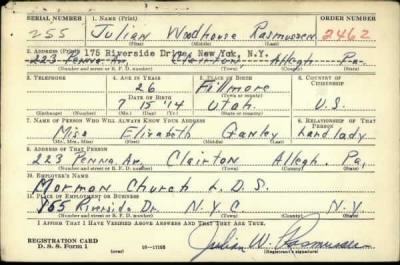 SERIAL NUMBER 1. NAME (Print) ORDER NUMBER
255 Julian Woodhouse Rasmussen 2462
(First) (Middle) (Last)
2. ADDRESS (Print) 175 Riverside Drive, New York, N.Y.
223 Penna. Av. Clairton, Allegh Pa.
(Number and street or R. F. D. number) (Town) (County) (State)
3. TELEPHONE 4. AGE IN YEARS 5. PLACE OF BIRTH 6. COUNTRY OF CITIZENSHIP
26 Fillmore
DATE OF BIRTH (Town or county)
7 15 '14 Utah. U.S.
(Exchange) (Number) (Mo.) (Day) (Yr.) (State or country)
7. NAME OF PERSON WHO WILL ALWAYS KNOW YOUR ADDRESS 8. RELATIONSHIP OF THAT PERSON
Miss Elizabeth Ganley Landlady
(Mr., Mrs., Miss) (First) (Middle) (Last)
9. ADDRESS OF THAT PERSON
223 Penna. Av. Clairton Allegh. Pa.
(Number and street or R. F. D. number) (Town) (County) (State)
10. EMPLOYER'S NAME
Mormon Church L.D.S.
11. PLACE OF EMPLOYMENT OR BUSINESS
155 Riverside Dr. N.Y.C. N.Y.
(Number and street or R. F. D. number) (Town) (County) (State)
I AFFIRM THAT I HAVE VERIFIED ABOVE ANSWERS AND THAT THEY ARE TRUE.
REGISTRATION CARD
D. S. S. Form 1 (over) 16—17105 Julian W. Rasmussen
(Registrant's signature)